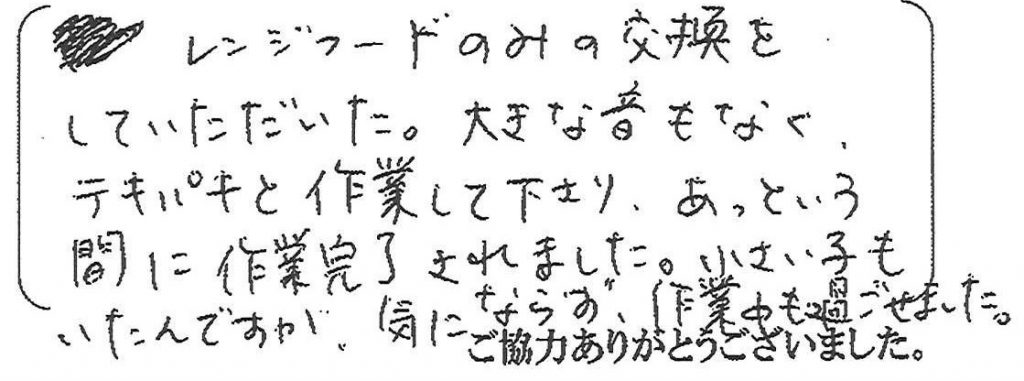 レンジフードのみの交換を
していただいた。大きな音もなく、
テキパキと作業して下さり、あっという
間に作業完了されました。小さい子も
いたんですが、気にならず、作業中も過ごせました。
ご協力ありがとうございました。